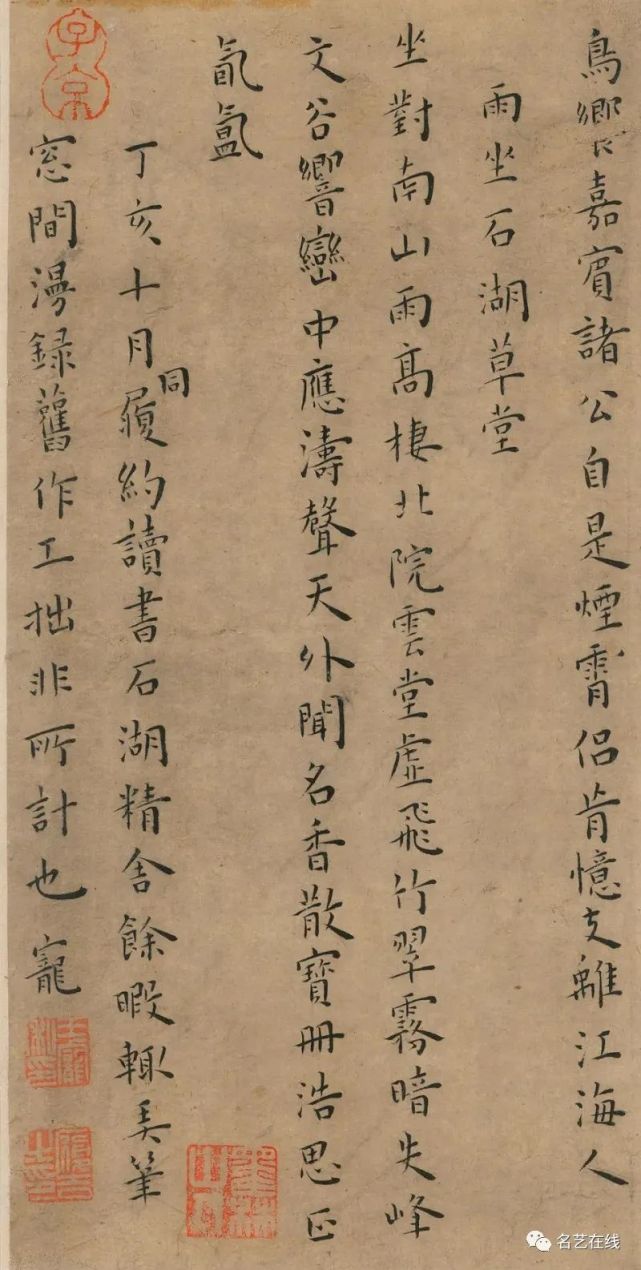 鳥響嘉賓諸公自是煙霄侶肯憶支離江海人
雨坐石湖草堂
坐對南山雨高棲北院雲堂虛飛竹翠霧暗失峰
文谷響巒中應濤聲天外聞名香散寶冊浩思正
氤氳
丁亥十月同履約讀書石湖精舍餘暇輒弄筆
窓間漫録舊作工拙非所計也寵
子京
名艺在线